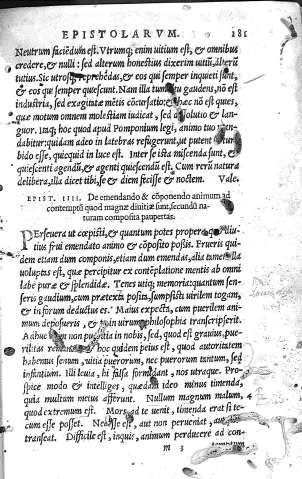 EPISTOLARVM. 281
Neutrum faciēdum est. Vtrumq; enim uitium est, & omnibus
credere, & nulli: sed alterum honestius dixerim uitiū, alterū
tutius. Sic utrosq; reprehēdas, & eos qui semper inqueti sunt,
& eos que semper quiescunt. Nam illa tumultu gaudens, nō est
industria, sed exagitatæ mētis cōcursatio: & hæc nō est ques,
quæ motum omnem molestiam iudicat, sed dissolutio & lan-
guor. Itaq; hoc quod apud Pomponium legi, animo
dabitur: quidam adeo in latebras refugerunt, ut putent
bido esse, quicquid in luce est. Inter se ista miscenda sunt, &
quiescenti agendū, & agenti quiescendū est. Cum rerū natura
delibera, illa dicet tibi, se & diem fecisse & noctem. Vale.
EPIST. IIII. De emendando & cōponendo animum ad
contemptū quod magnæ diuitiæ sunt, secundū na-
turam composita paupertas.
PErseuera ut cœpisti, & quantum potes propera, quo diu-
tius frui emendato animo & cōposito possis. Frueris qui-
dem etiam dum componis, etiam dum emendas, alia tamen illa
uoluptas est, quæ percipitur ex cōtēplatione mentis ab omni
labe puræ & splendidæ. Tenes utiq; memoria: quantum sen-
seris gaudium, cum prætexta posita, sumpsisti uirilem togam,
& in forum deductus es. Maius expecta, cum puerilem ani-
mum deposueris, & te in uirum philosophia transcripserit.
Adhuc non pueritia in nobis, sed, quod est grauius, pue-
rilitas remanet. & hoc quidem peius est, quod autoritatem
habemus senum, uitia puerorum, nec puerorum tantum, sed
infantium. Illi leuia, hi falsa formidant, nos utraque. Pro-
spice modo & intelliges, quædam ideo minus timenda,
quia multum metus afferunt. Nullum magnum malum,
quod extremum est. Mors ad te uenit, timenda erat si te-
cum esse posset. Necesse est, aut non perueniat, aut
transeat. Difficile est, inquis, animum perducere ad con-
m 3